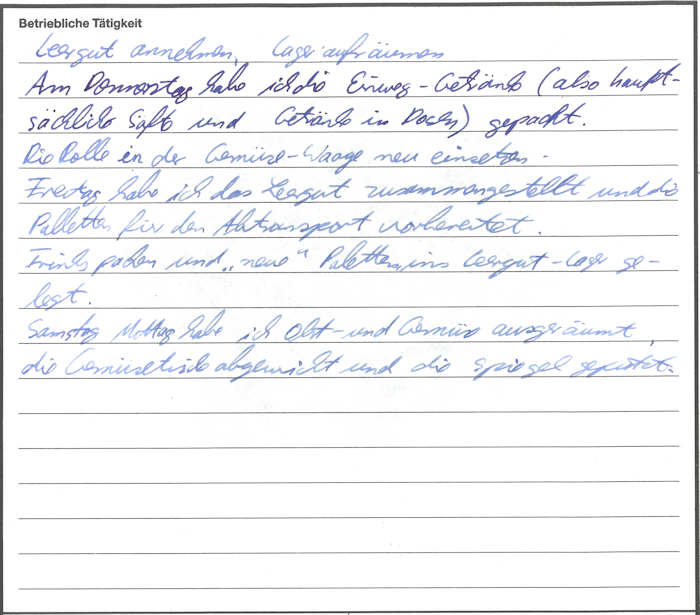 Betriebliche Tätigkeit
Leergut annehmen, Lager aufräumen
Am Donnerstag habe ich die Einweg-Getränke (also haupt-
sächlich Säfte und Getränke in Dosen) gepackt.
Die Rolle in der Gemüse-Waage neu einsetzen.
Freitag habe ich das Leergut zusammengestellt und die
Palletten für den Abtransport vorbereitet.
packen und "neue" Paletten ins Leergut-Lager ge-
legt.
Samstag Mittag habe ich Obst- und Gemüse ausgeräumt,
die Gemüsetische abgewischt und die Spiegel geputzt.